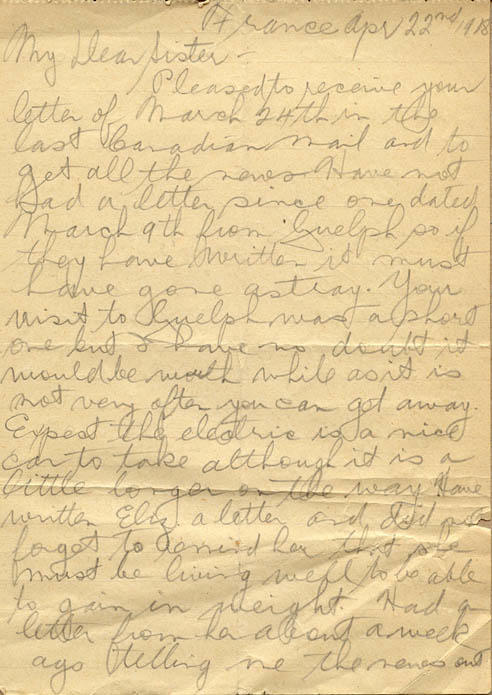 France Apr 22nd/1918
My Dear Sister -
Pleased to receive your
letter of March 24th in the
last Canadian mail and to
get all the news Have not
had a letter since one dated
March 9th from Guelph so if
they have written it must
have gone astray. Your
visit to Guelph was a short
one but I have no doubt it
would be worth while as it is
not very often you can get away.
Expect the electric is a nice
car to take although it is a
little longer on the way Have
written Eliz. a letter and did not
forget to remind her that she
must be living well to be able
to gain in weight. Had a
letter from her about a week
ago telling me the news and